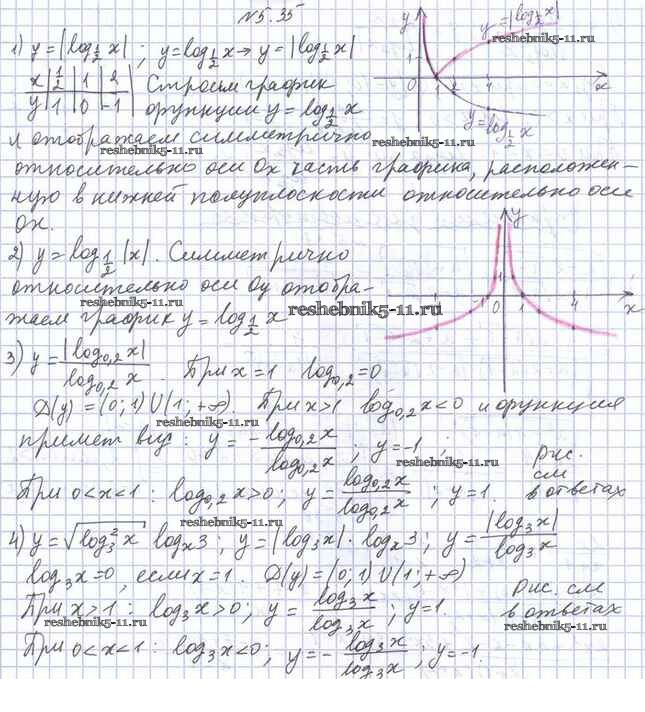 №5.35
1) y=|log_{1/2} x| ; y=log_{1/2} x → y=|log_{1/2} x|
x | 1/2 | 1 | 2 Строим график
y | 1 | 0 | -1 функции y=log_{1/2} x
и отображаем симметрично
относительно оси Ox часть графика, расположен-
ную в нижней полуплоскости относительно оси
Ox.
y
y=|log_{1/2} x|
1
0 1 2 4 x
y=log_{1/2} x
2) y=log_{1/2} |x|. Симметрично
относительно оси Oy отобра-
жаем график y=log_{1/2} x
y
1
-1 0 1 4 x
3) y=|log_{0,2} x| / log_{0,2} x. При x=1 log_{0,2}=0
D(y)=(0;1)∪(1;+∞). При x>1 log_{0,2} x<0 и функция
примет вид: y=-log_{0,2} x / log_{0,2} x ; y=-1 ;
При 0<x<1: log_{0,2} x>0; y=log_{0,2} x / log_{0,2} x ; y=1.
Рис.
см
в ответах
4) y=√(log_3^2 x) log_x 3 ; y=|log_3 x|·log_x 3 ; y=|log_3 x| / log_3 x
log_3 x=0, если x=1. D(y)=(0;1)∪(1;+∞)
При x>1: log_3 x>0; y=log_3 x / log_3 x ; y=1.
Рис. см
в ответах
При 0<x<1: log_3 x<0; y=-log_3 x / log_3 x ; y=-1.
reshebnik5-11.ru
reshebnik5-11.ru
reshebnik5-11.ru
reshebnik5-11.ru
reshebnik5-11.ru
reshebnik5-11.ru
reshebnik5-11.ru
reshebnik5-11.ru
reshebnik5-11.ru
reshebnik5-11.ru